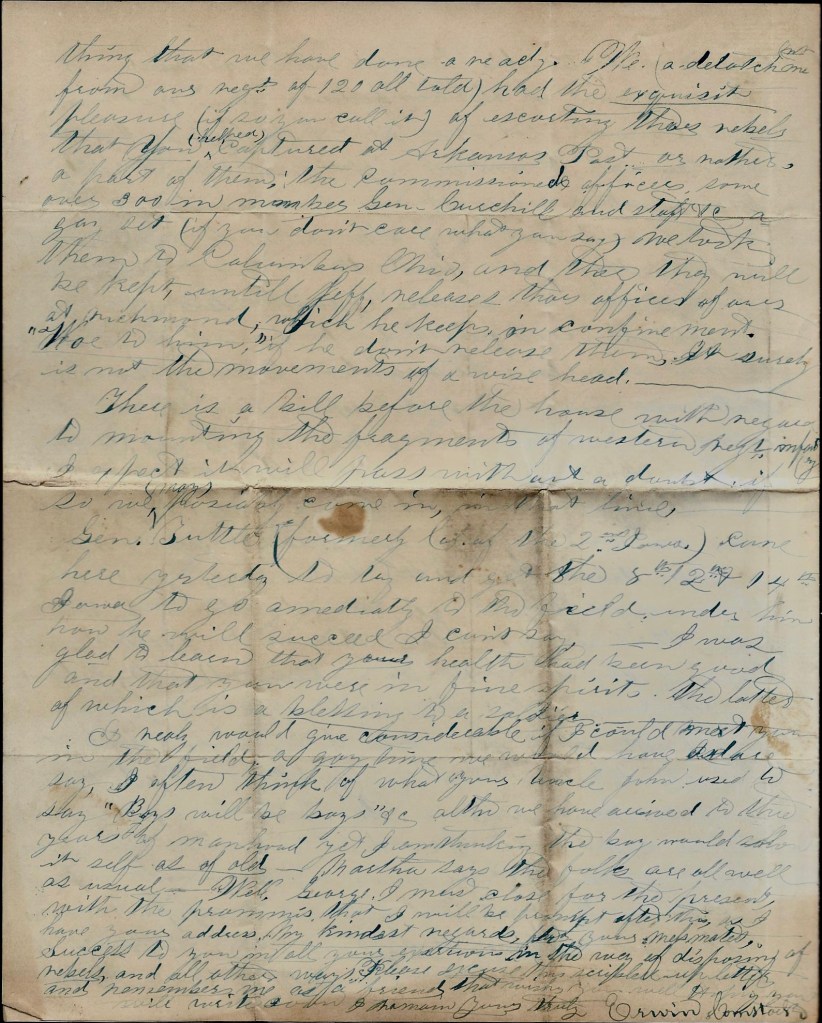 thing that we have done aready. We (a detatchment
from our regt of 120 all told) had the exquisit
pleasure (if so you call it) of escorting thoes rebels
that you (helped) captured at Arkansas Post or rather,
a part of them; the commissioned officers, some
over 300 in number Gen. Churchill and staff &c, a
gay set (if you don't care what you say) We took
them to Columbus Ohio, and there they will
be kept, untill Jeff, releases thoes offices of ours
at richmond, which he keeps, in confinement.
"Woe to him," if he don't release them, It surely
is not the movements of a wise head.
There is a bill before the house with regard
to mounting the fragments of western regt, infantry
I expect it will pass without a doubt, if
so we may come in, in that time,
Gen. Tuttle (formerly Col. of the 2nd Iowa.) came
here yesterday to try and get the 8th 12th & 14th
Iowa to go amediatly to the field, under him
how he will succeed I can't say, I was
glad to learn that your health had been good
and that you were in fine spirit. the latter
of which is a blessing to a soldier
I realy would give considerable if I could meet you
in the field, a gay time we would have
say, I often think of what your uncle John used to
say "Boys will be boys" &c altho we have arrived to the
years of manhood yet I am thinking the boy would show
it self as of old – Martha says the folks are all well
as usual – Well George, I must close for the present,
with the prommis, that I will be prompt after this, as I
have your address. My kindest regards, to your messmates,
Success to you in all your in the way of disposing of
rebels, and all other ways, Please excuse this scribled up letter
and remember me as a friend that wishes you well
will write soon I remain Yours truly
Erwin